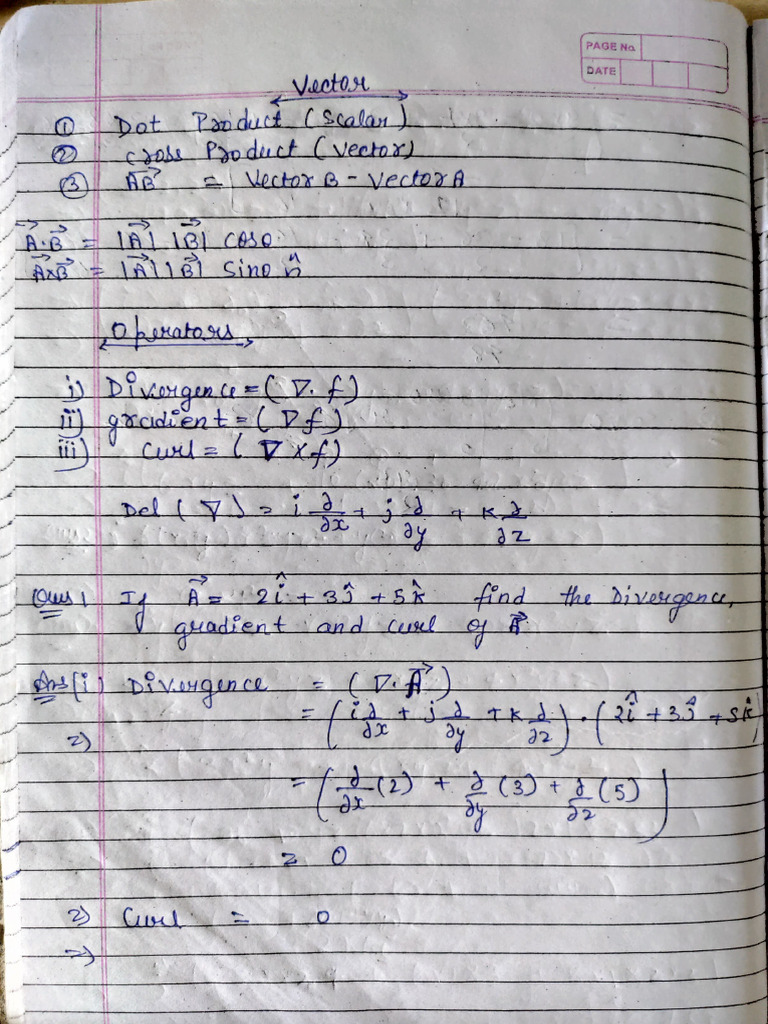 PAGE No.
DATE
Vector
① Dot Product (Scalar)
② cross Product (Vector)
③ AB⃗ = Vector B - Vector A
A⃗·B⃗ = |A⃗| |B⃗| cosθ
A⃗×B⃗ = |A⃗| |B⃗| sinθ n̂
Operators
i) Divergence = (∇·f)
ii) gradient = (∇f)
iii) Curl = (∇×f)
Del (∇) = i ∂/∂x + j ∂/∂y + k ∂/∂z
Ques 1 If A⃗ = 2î + 3ĵ + 5k̂ find the Divergence,
gradient and curl of A⃗
Ans (i) Divergence = (∇·A⃗)
= (i ∂/∂x + j ∂/∂y + k ∂/∂z) · (2î + 3ĵ + 5k̂)
⇒
= (∂/∂x (2) + ∂/∂y (3) + ∂/∂z (5))
= 0
2) Curl = 0
⇒